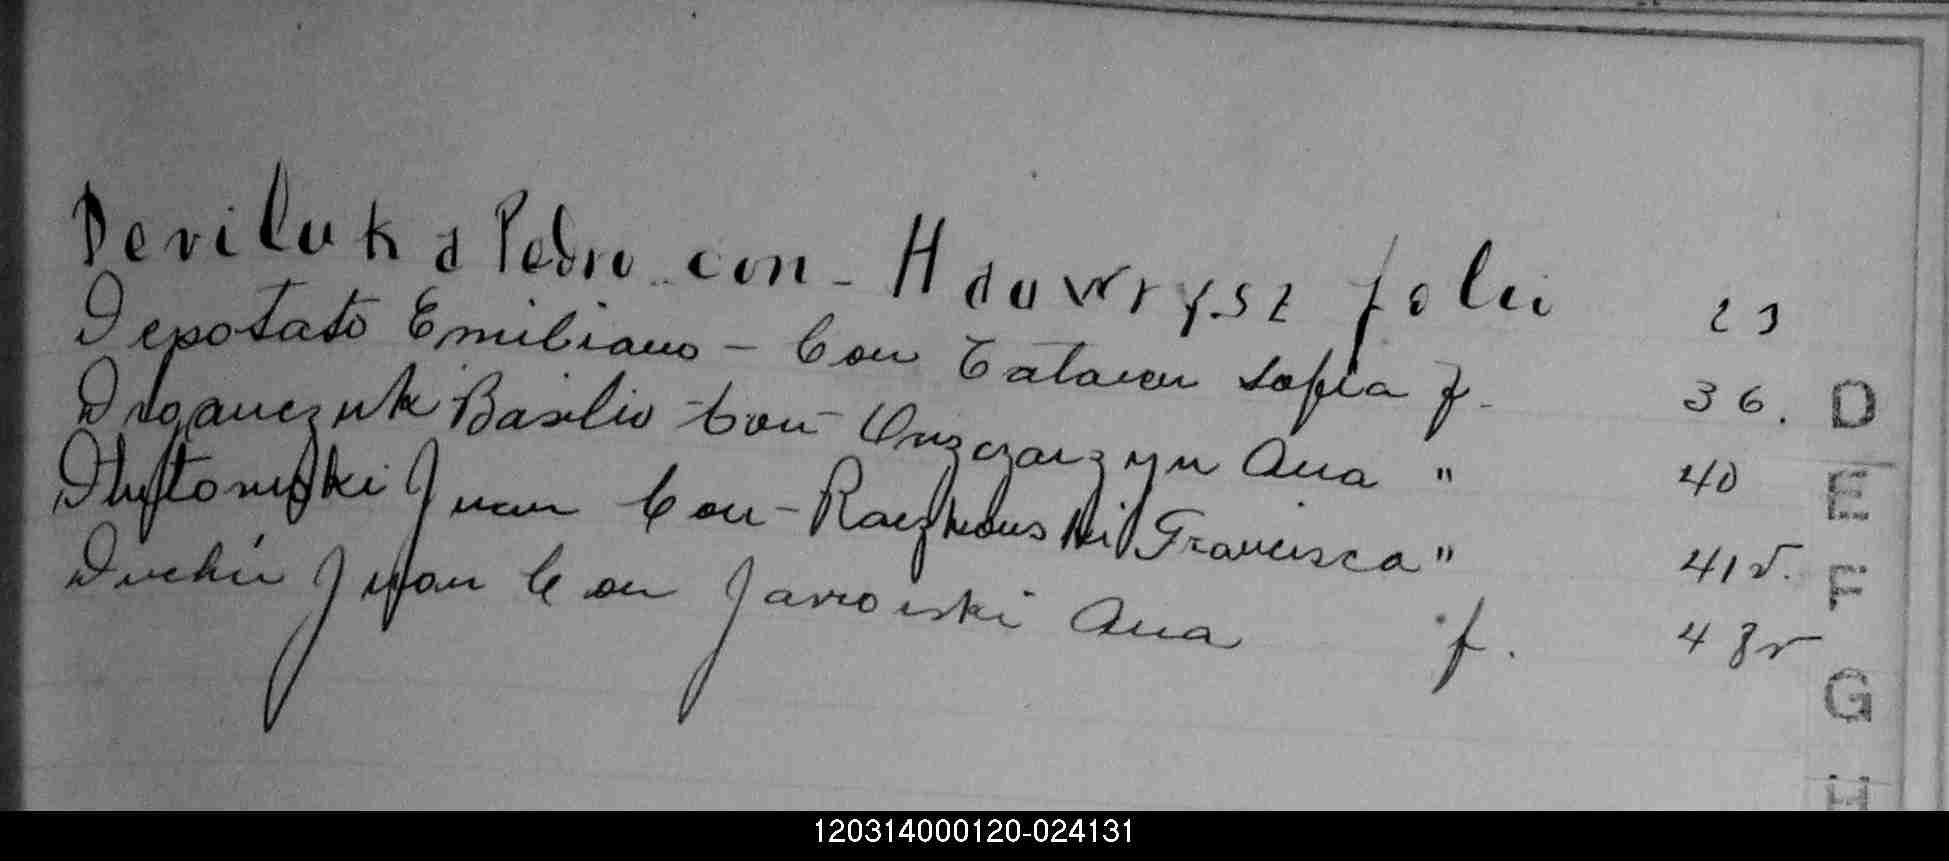 Deviluk a Pedro con - Hauwrysz folio 23
Depotato Emiliano - Con Tataren Sofia f. 36.
Droganczuk Basilio Con Ana " 40
Juan Con - Raczkouski Francisca " 41 v.
Juan Con Jaworski Ana f. 48 v
D
E
F
G
H
120314000120-024131